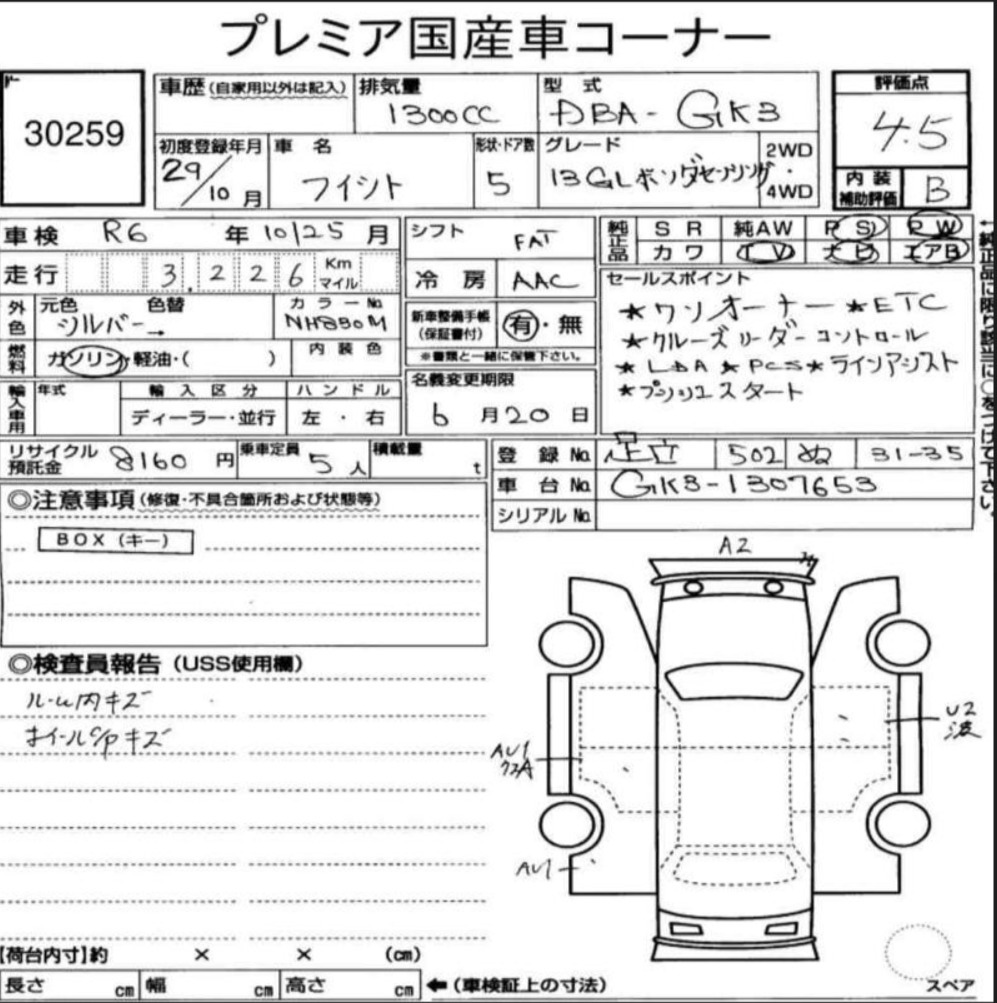 プレミア国産車コーナー
30259
車歴 (自家用以外は記入)
排気量
1300cc
型式
DBA-GK3
評価点
4.5
初度登録年月
29/10月
車名
フィット
形状・ドア数
5
グレード
13GLホンダセンシング
2WD
・
4WD
内装
補助評価
B
車検
R6年10/25月
シフト
FAT
純正品
SR
純AW
PS
PW
カワ
TV
ナビ
エアB
走行
3,226
Km
マイル
冷房
AAC
セールスポイント
★ワンオーナー ★ETC
★クルーズリーダーコントロール
★LDA★PCS★ラインアシスト
★プッシュスタート
外色
元色
シルバー→
色替
カラーNo.
NH830M
新車整備手帳
(保証書付)
有・無
※書類と一緒に保管下さい。
燃料
ガソリン・軽油・( )
内装色
名義変更期限
6月20日
輸入車用
年式
輸入区分
ディーラー・並行
ハンドル
左・右
←純正品に限り該当に○をつけて下さい。
リサイクル
預託金
8160円
乗車定員
5人
積載量
t
登録No.
足立 502 ぬ 31-35
車台No.
GK3-1307653
シリアルNo.
◎注意事項(修復・不具合箇所および状態等)
BOX(キー)
◎検査員報告(USS使用欄)
ルーム内キズ
ホイールC/Pキズ
A2
U2
波
AU1
AU1
【荷台内寸】約 × × (cm)
長さ cm
幅 cm
高さ cm
←(車検証上の寸法)
スペア